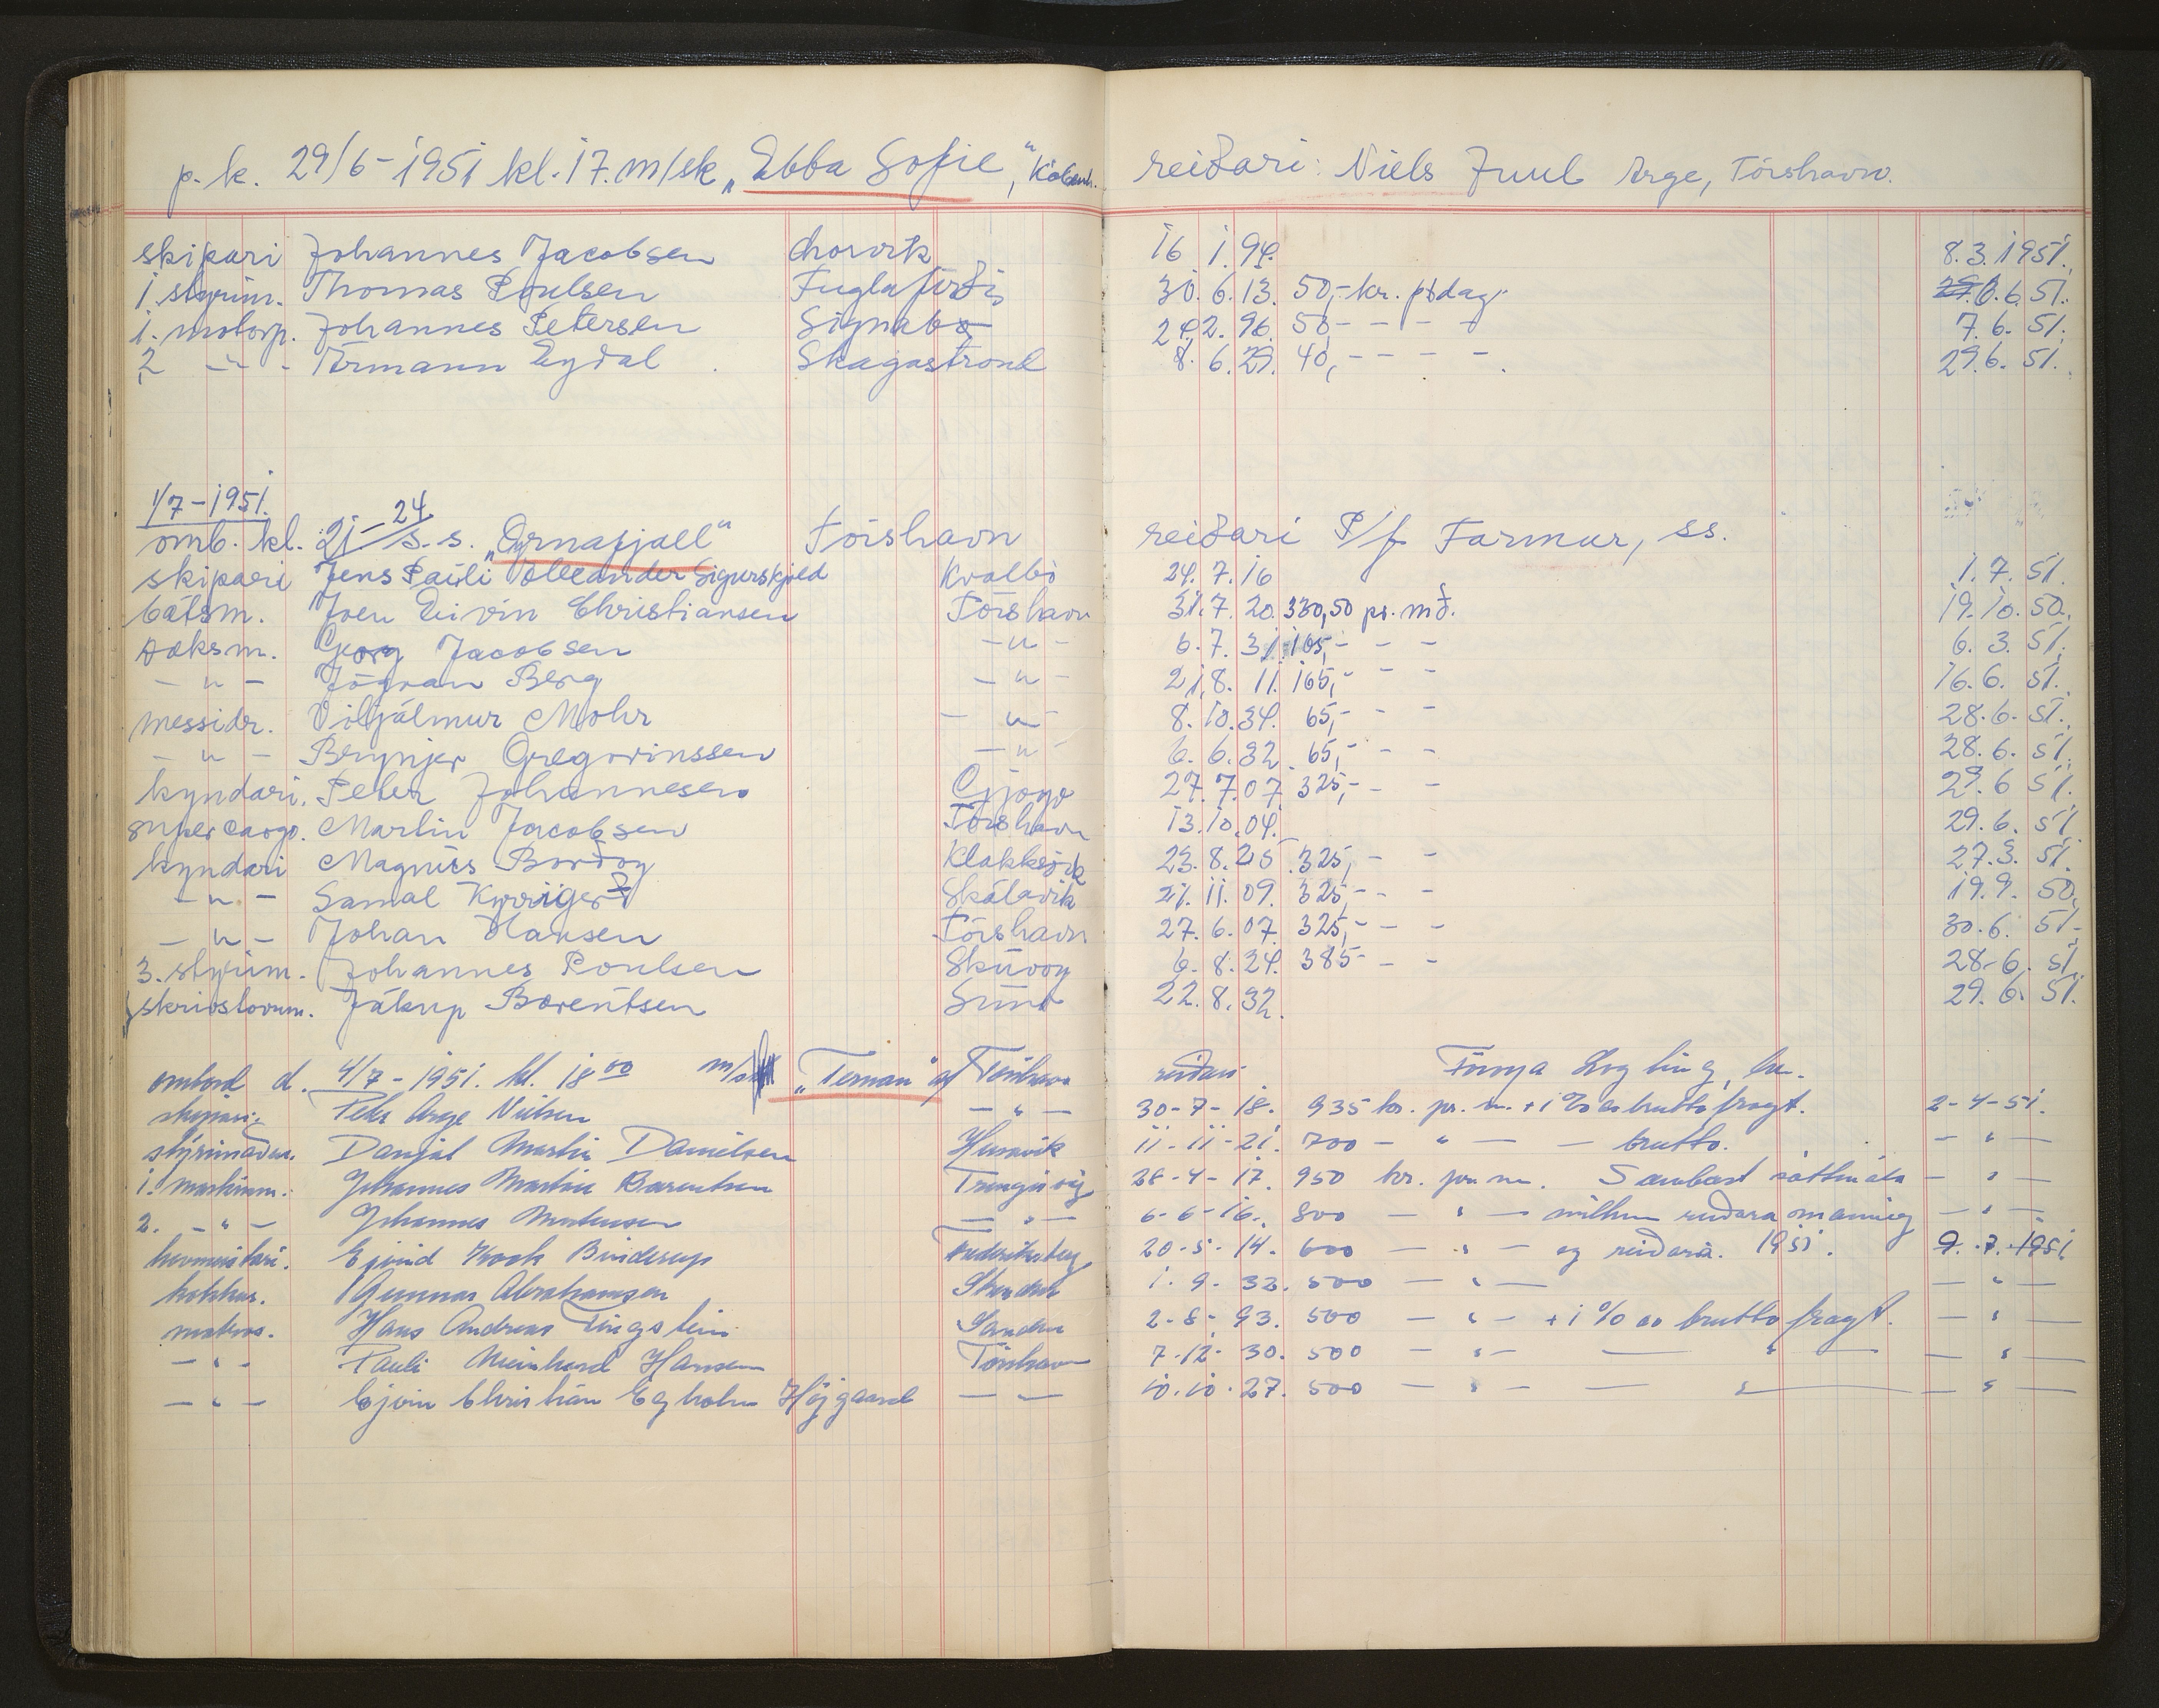 p.k. 29/6-1951 kl. 17. m/sk „Ebba Sofie“, Kobenh. reiðari: Niels Juul Arge, Tórshavn.
skipari Johannes Jacobsen 16 1. 94. 8. 3. 1951.
1. stýrim. Thomas Poulsen Fuglafirði 30. 6. 13. 50,- kr. dag. 6. 51.
1. motorp. Johannes Petersen Signabø 24. 2. 96. 50,- - - - 7. 6. 51.
2 -"- Ármann Eydal Skagastrond 8. 6. 29. 40,- - - - 29. 6. 51.
1/7-1951.
omb. kl. 21-24 s.s. „Ørnafjall“ Tórshavn reiðari P/f Farmur, ss.
skipari Jens Pauli Alleander Sigurskjold Kvalbø 24. 7. 16 1. 7. 51.
bátsm. Joen Eivin Christiansen Tórshavn 31. 7. 20. 330,50 pr. mð. 19. 10. 50.
dæksm. Georg Jacobsen -"- 6. 7. 31 165,- - - 6. 3. 51.
-"- Jógvan Berg -"- 21. 8. 11. 165,- - - 16. 6. 51.
messidr. Viljálmur Mohr -"- 8. 10. 34. 65,- - - 28. 6. 51.
-"- Brynjer Gregorinssen -"- 6. 6. 32. 65,- - - 28. 6. 51.
kyndari. Peter Johannesen Gjógv 27. 7. 07 325,- - - 29. 6 51.
supercargo. Martin Jacobsen Tórshavn 13. 10. 04. 29. 6. 51
kyndari Magnús Borðoy Klakksvík 23. 8. 25 325,- - 27. 3. 51
-"- Samal Skálavík 21. 11. 09. 325,- - - 19. 9. 50.
-"- Johan Hansen Tórshavn 27. 6. 07. 325,- - - 30. 6. 51.
3. stýrim. Johannes Poulsen Skúvoy 6. 8. 24. 385- - - 28. 6. 51.
skrivstovum. Jákup Barentsen Sund 22. 8. 32. 29. 6. 51.
ombord d. 4/7-1951. kl. 18 00 m/s „Ternan“ af Tórshavn reiðari Føroya Logting, hr.
skipari: Peter Arge Nielsen -"- 30-7-18. 935 kr. pr. m. + 1% av brutto fragt. 2-4-51.
stýrimaður. Danjál Martin Danielsen 11-11-21. 700 -"- brutto. -"-
1. maskinm. Johannes Martin Barentsen 28-4-17. 950 kr. pr. m. Sambart sáttmála -"-
2. -"- Johannes Mortensen -"- 6-6-16. 800 -"- millum manning -"-
hovmeistari. Ejvind Kock Binderup Frederiksberg 20-5-14. 600 -"- og reiðara. 1951. 9. 7. 1951
kokkur. Gunnar Abrahamsen 1. 9. 33. 500 -"- -"-
matros. Hans Andreas Tingstein Sandur 2-8-93. 500 -"- + 1% av brutto fragt. -"-
-"- Pauli Meinhard Hansen Tórshavn 7-12-30. 500 -"- -"- -"-
-"- Ejvin Christian Egholm Højgaard -"- 10. 10. 27. 500 -"- -"- -"-